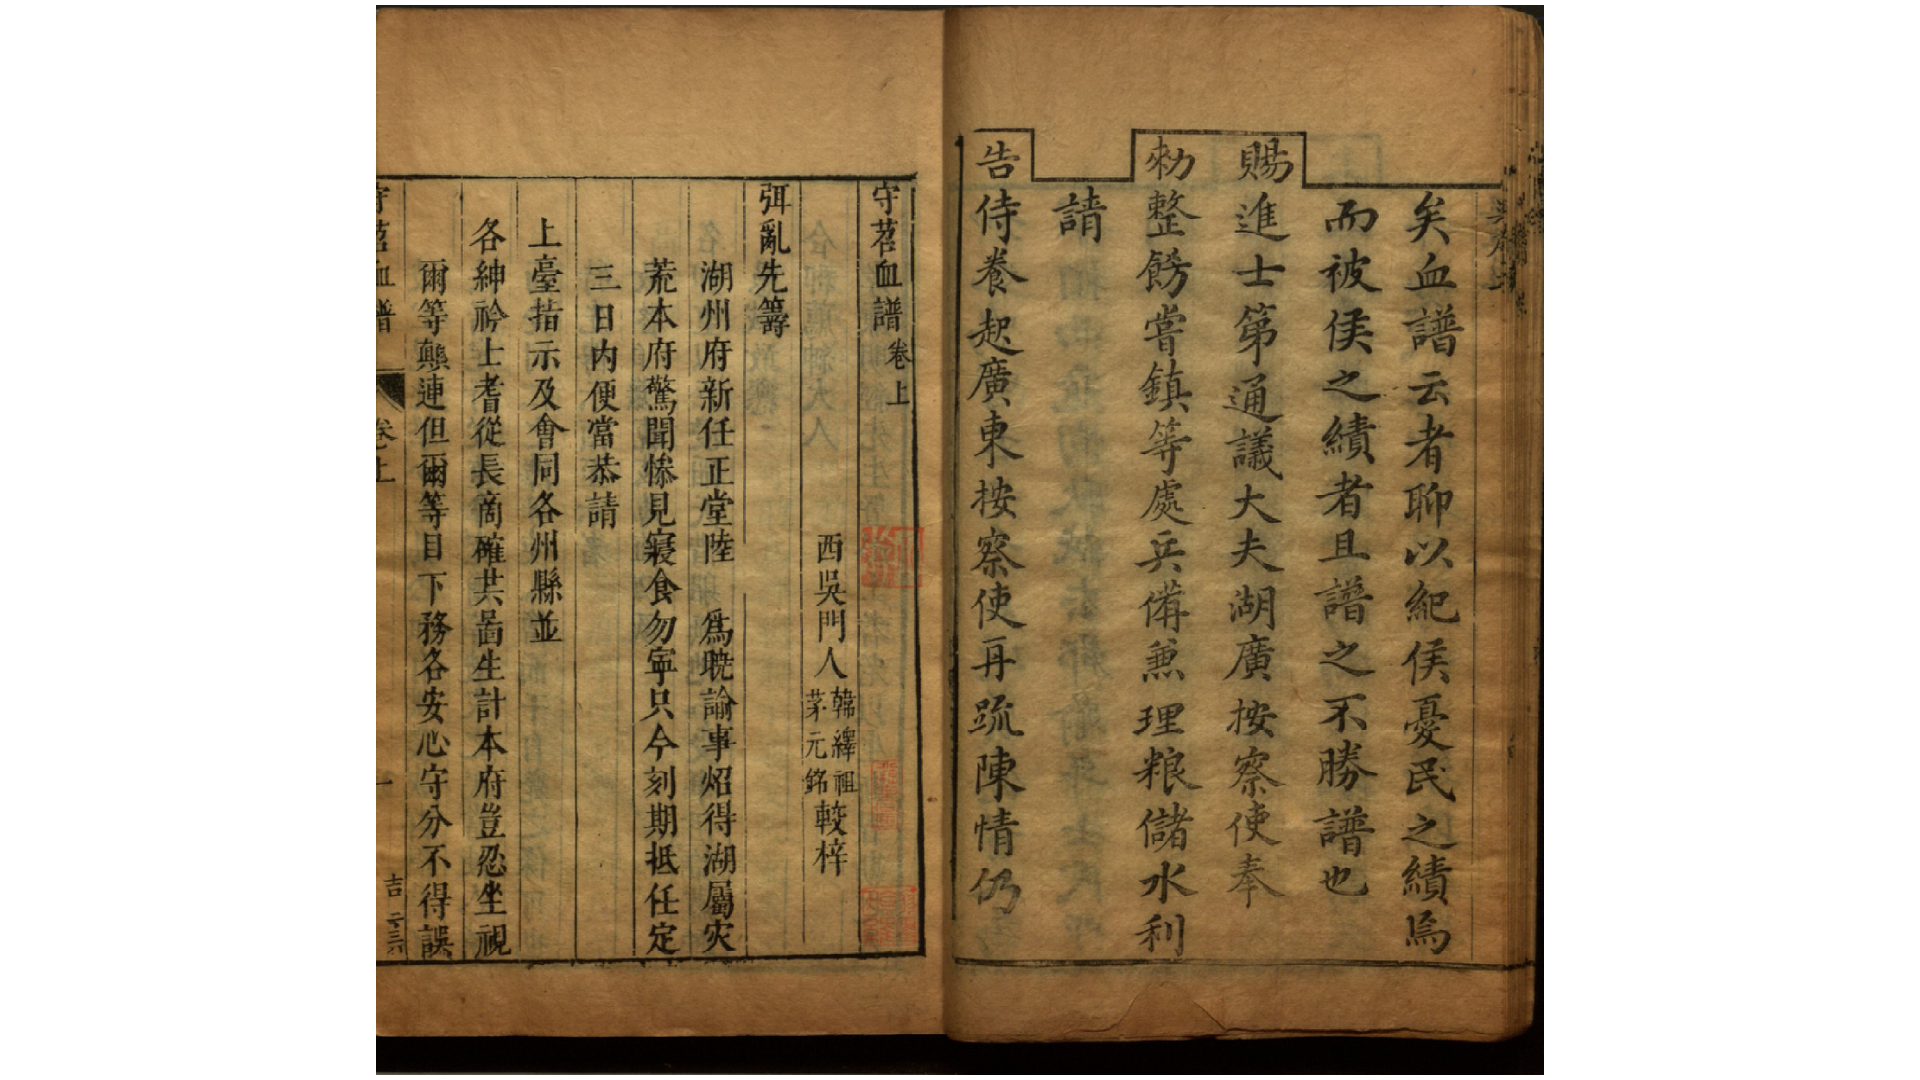 矣血譜云者聊以紀侯憂民之績焉
而被侯之績者且譜之不勝譜也
賜進士第通議大夫湖廣按察使奉
勑整飭嘗鎮等處兵備兼理粮儲水利
請
告侍養起廣東按察使再疏陳情仍
守苕血譜卷上
西吳門人韓繹祖茅元銘較梓
弭亂先籌
湖州府新任正堂陸 爲曉諭事炤得湖屬灾
荒本府驚聞慘見寢食勿寕只今刻期抵任定
三日内便當恭請
上臺指示及會同各州縣並
各紳衿士耆從長商確共啚生計本府豈忍坐視
爾等顛連但爾等目下務各安心守分不得誤
守苕血譜 卷上 一